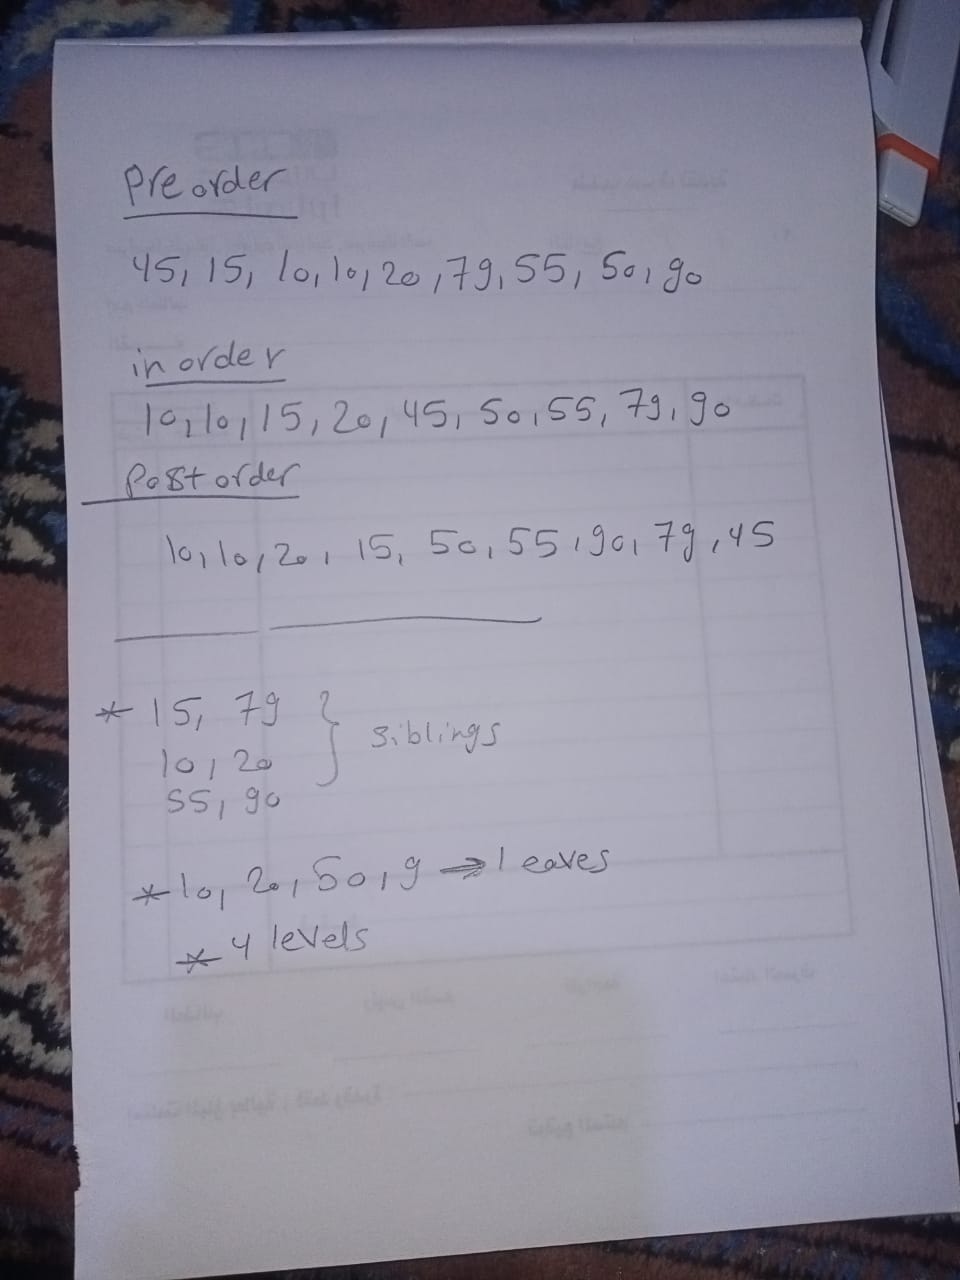 Preorder
45, 15, 10, 10, 20, 79, 55, 50, 90
in order
10, 10, 15, 20, 45, 50, 55, 79, 90
Postorder
10, 10, 20, 15, 50, 55, 90, 79, 45
* 15, 79
10, 20 } siblings
55, 90
* 10, 20, 50, 9 → leaves
* 4 levels